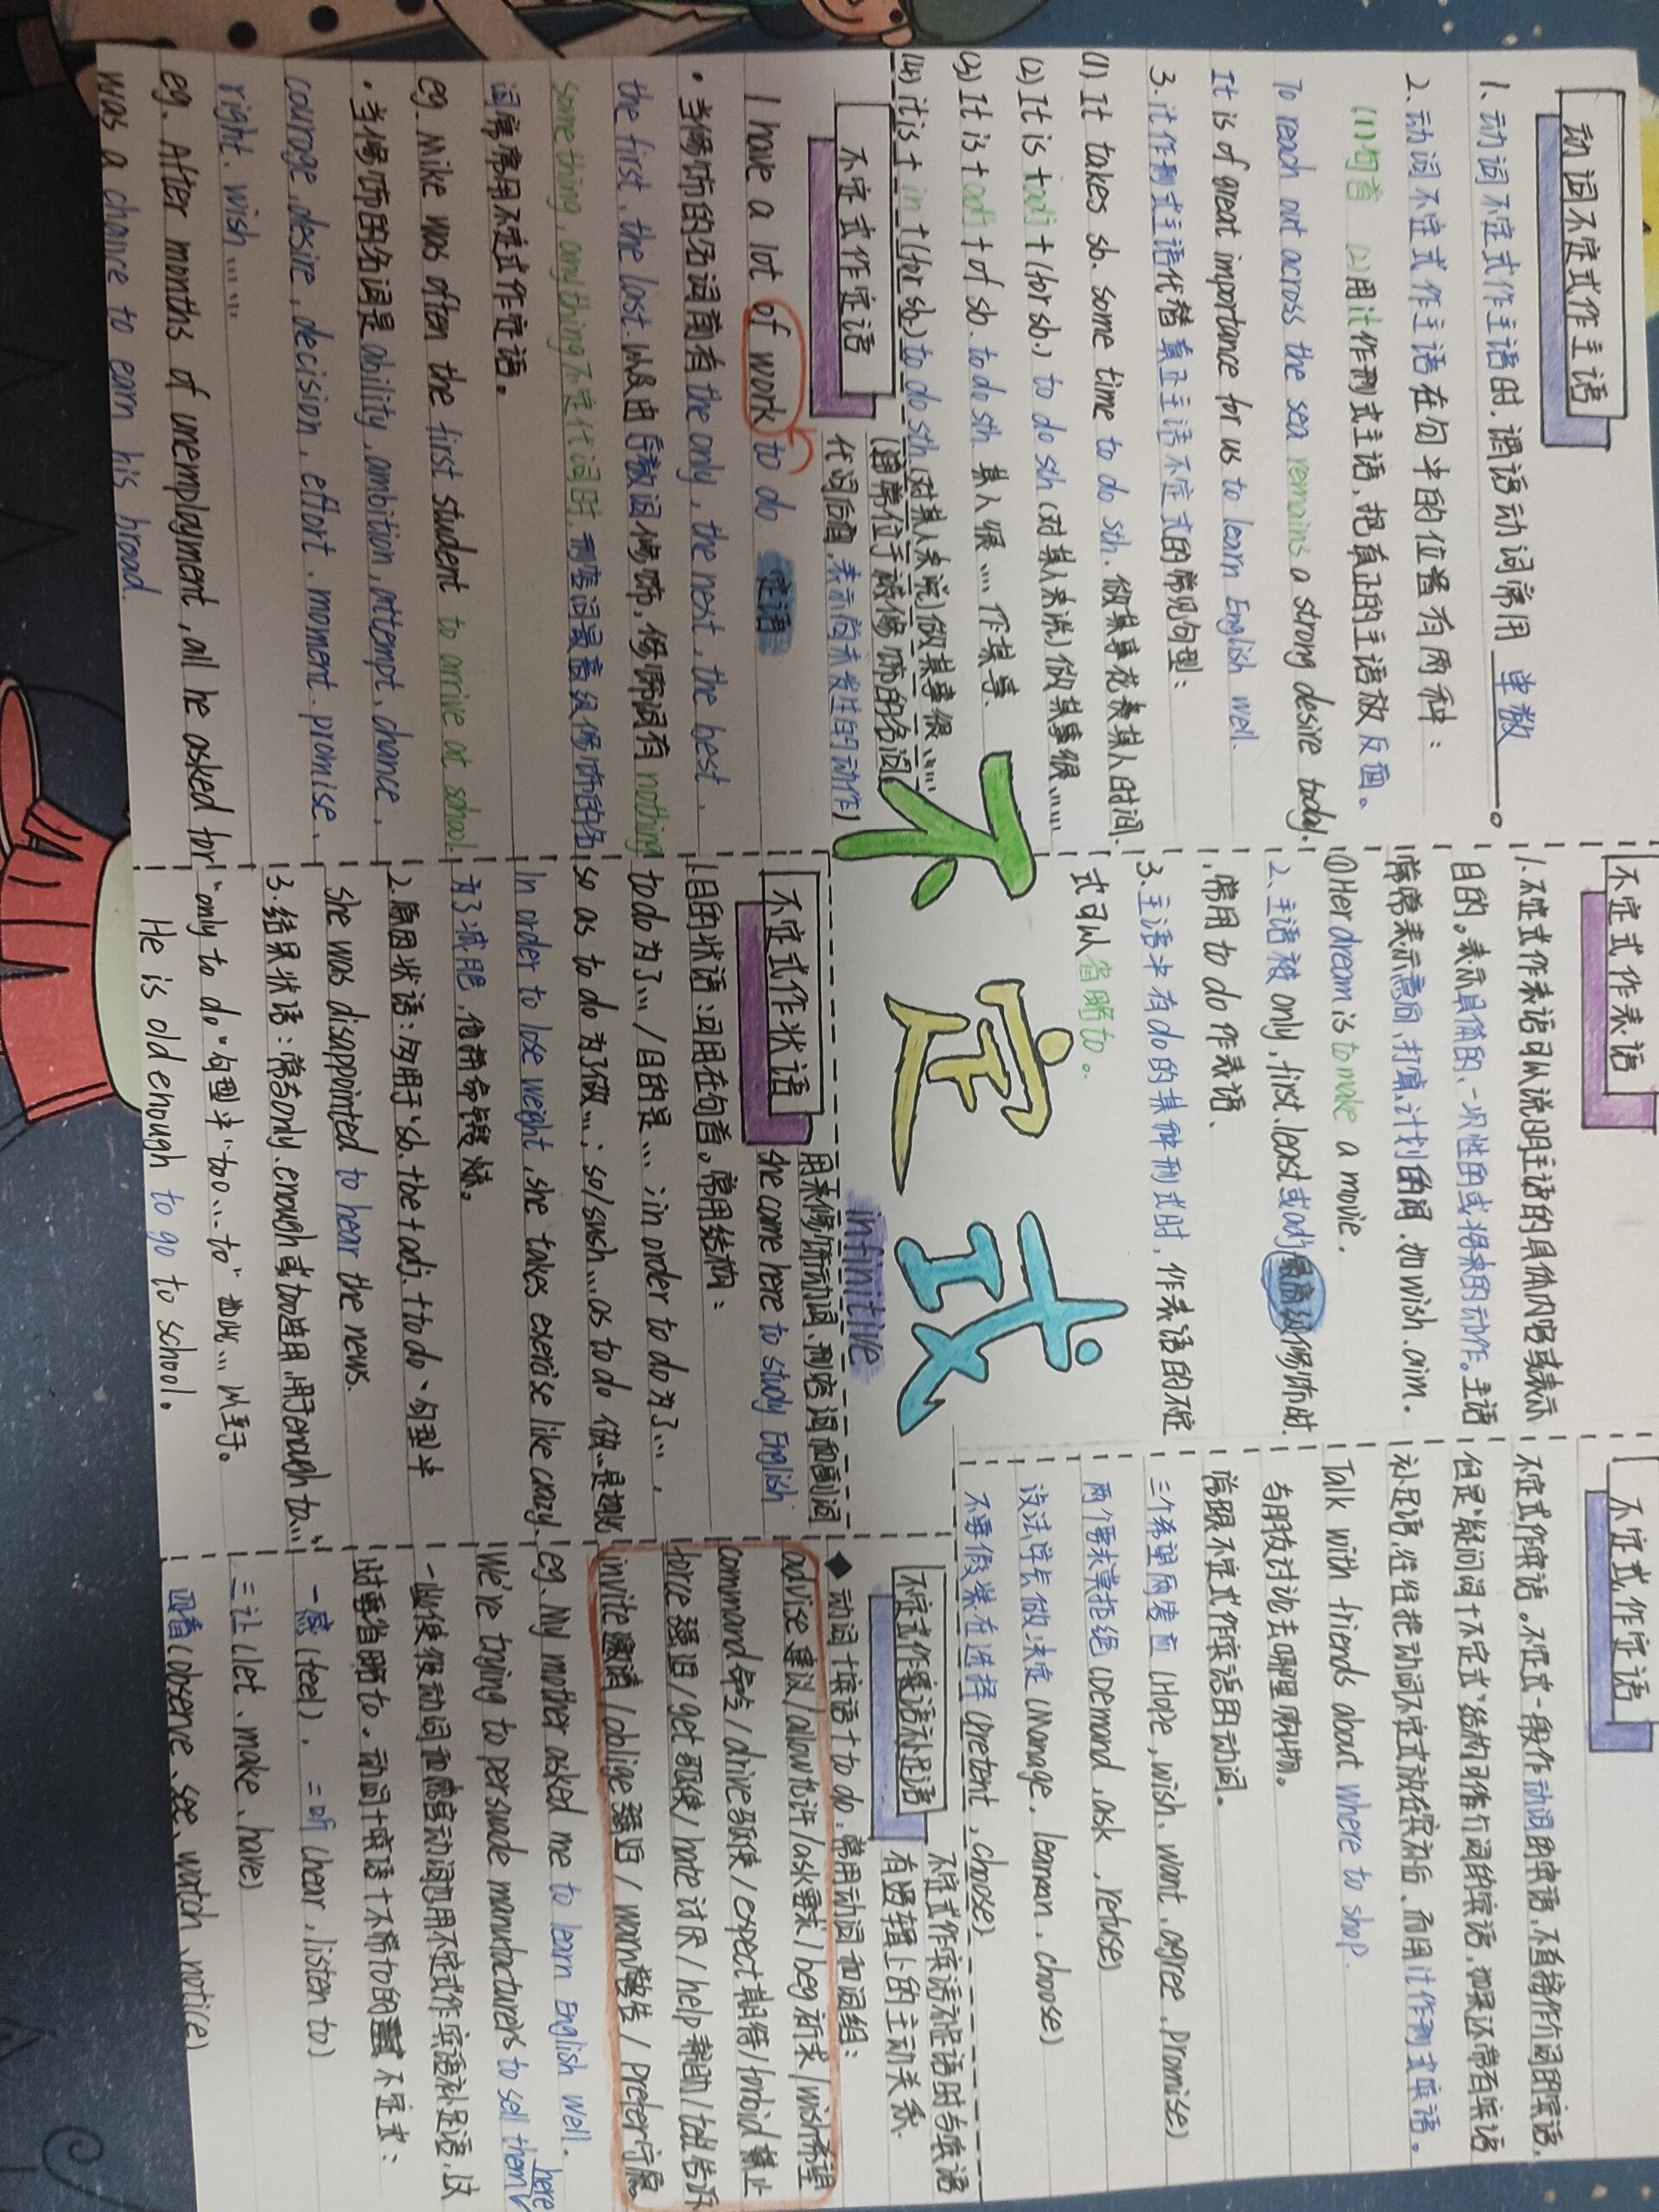 动词不定式作主语
1.动词不定式作主语时,谓语动词常用 单数 。
2.动词不定式作主语在句中的位置有两种:
(1)句首 (2)用it作形式主语,把真正的主语放后面。
To reach out across the sea remains a strong desire today.
It is of great importance for us to learn English well.
3.it作形式主语代替真正主语不定式的常见句型:
(1) It takes sb. some time to do sth. 做某事花费某人时间.
(2) It is +adj + (for sb.) to do sth (对某人来说)做某事很……
(3) It is + adj + of sb. to do sth 某人很……作某事.
(4) it is + in + (for sb.) to do sth.(对某人来说)做某事很……
不定式作定语
(通常位于被修饰的名词
代词后面,表示尚未发生的动作)
I have a lot of work to do 定语
·当修饰的名词前有the only, the next, the best,
the first, the last.以及由序数词修饰,修饰词有nothing
something, anything不定代词时,形容词最高级修饰的名
词席常用不定式作定语。
eg. Mike was often the first student to arrive at school.
·当修饰的名词是ability, ambition, attempt, chance,
courage, desire, decision, effort, moment, promise,
right, wish……
eg. After months of unemployment, all he asked for
was a chance to earn his broad.
不定式作表语
1.不定式作表语可以说明主语的具体内容或表示
目的,表示具体的、一次性的或将来的动作。主语
常常表示意向,打算,计划的词,如wish, aim.
①Her dream is to make a movie.
2.主语被only, first, least或adj最高级修饰时
.常用to do作表语.
3.主语中有do的某种形式时,作表语的不定
式可以省略to。
不定式
infinitive
不定式作状语
用来修饰动词、形容词和副词
she come here to study English
1.目的状语:可用在句首。常用结构:
to do 为了…/目的是… in order to do 为了…,
so as to do 为了做…; so/such…as to do 做…是如此
In order to lose weight, she takes exercise like crazy.
为了减肥,他拼命锻炼。
2.原因状语:多用于"sb.+be+adj.+to do"句型中
she was disappointed to hear the news.
3.结果状语:常与only, enough或too连用,用于enough to…"
"only to do"句型中"too…to"如此…以至于。
He is old enough to go to school.
不定式作宾语
不定式作宾语。不定式一般作动词的宾语,不直接作介词的宾语,
但是"疑问词+不定式"结构可作介词的宾语,如果还带有宾语
补足语,往往把动词不定式放在宾补后,而用it作形式宾语。
Talk with friends about where to shop.
与朋友讨论去哪里购物。
常跟不定式作宾语用动词。
三个希望两答应 (Hope, wish, want, agree, promise)
两个要求莫拒绝 (Demand, ask, refuse)
设法学会做决定 (Manage, learean, choose)
不要假装在选择 (Pretent, choose)
不定式作宾语补足语
不定式作宾语补足语时与宾语
有逻辑上的主动关系.
◆动词+宾语+to do,常用动词和词组:
advise建议/allow允许/ask要求/beg祈求/wish希望
command命令/drive驱使/expect期待/forbid禁止
force强迫/get驱使/hate讨厌/help帮助/tell告诉
invite邀请/oblige强迫/warn警告/prefer宁愿
eg. My mother asked me to learn English well.
We're trying to persuade manufacturers to sell them here
一些使役动词和感官动词也用不定式作宾语补足语,这
时要省略to.动词+宾语+不带to的不定式:
一感(feel),二听(hear, listen to)
三让(let、make、have)
四看(observe、see、watch、notice)